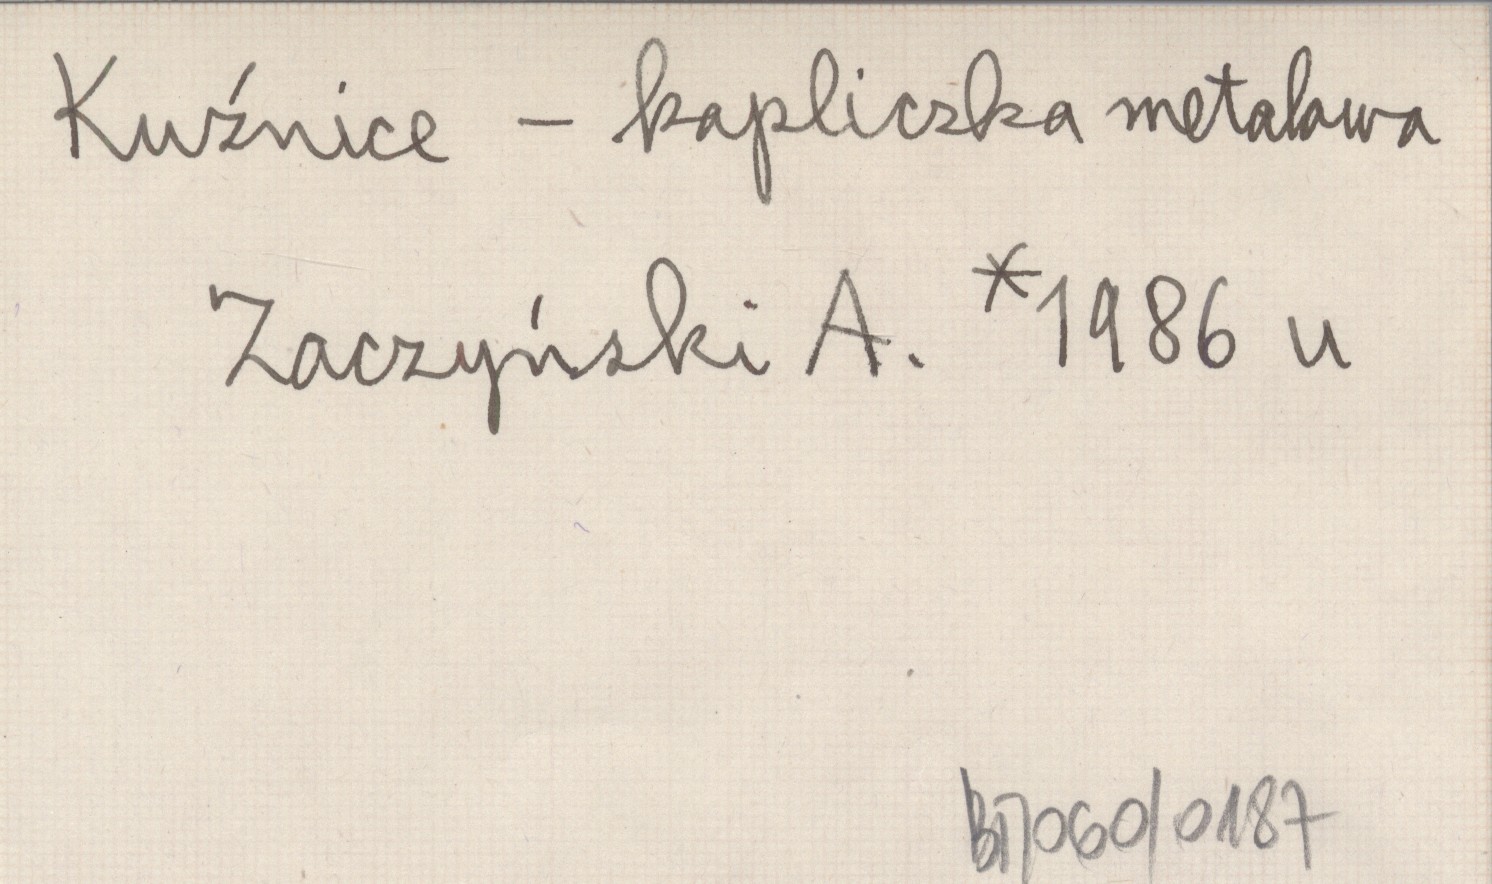 Kuźnice – kapliczka metalowa
Zaczyński A. *1986 u